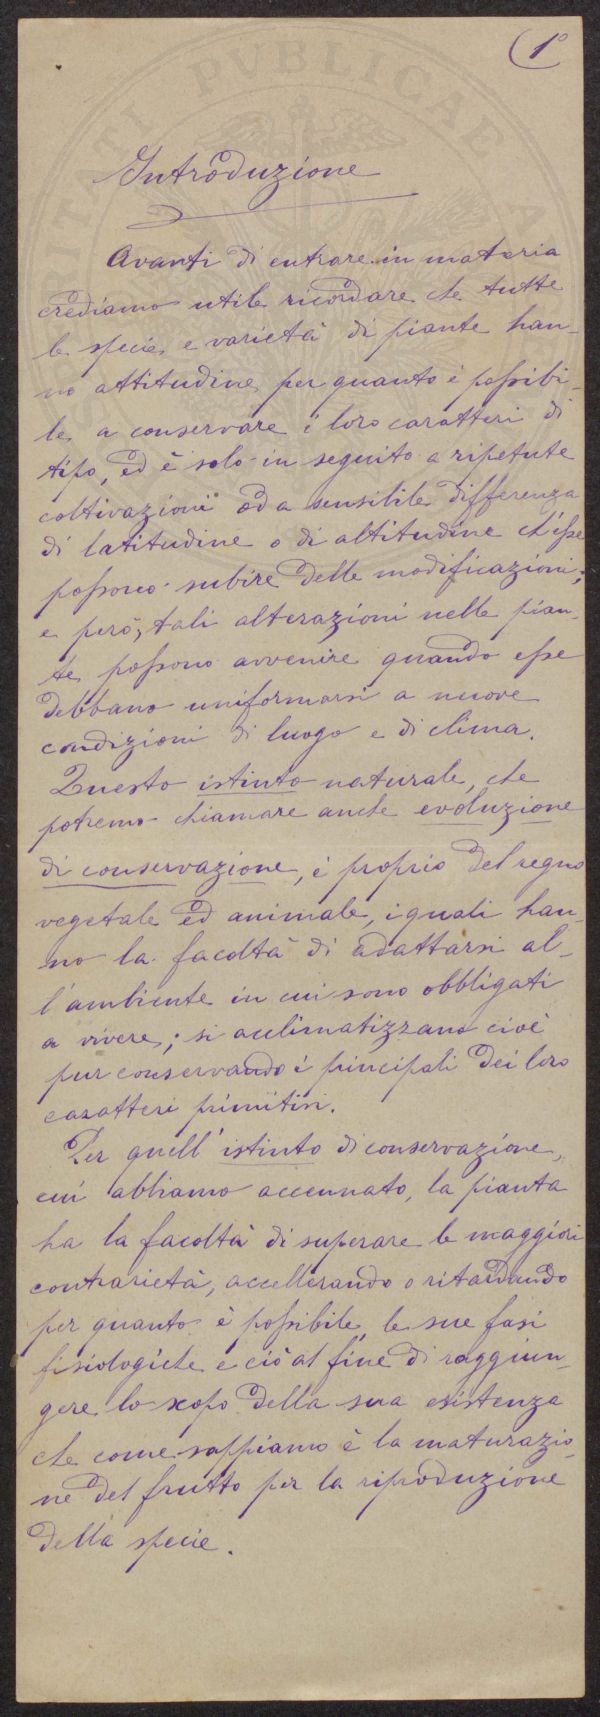 UTILITATI PUBLICAE
1°
Introduzione
Avanti di entrare in materia
crediamo utile ricordare che tutte
le specie e varietà di piante han-
no attitudine per quanto è possibi-
le a conservare i loro caratteri di
tipo, ed è solo in seguito a ripetute
coltivazioni od a sensibile differenza
di latitudine o di altitudine ch'esse
possono subire delle modificazioni;
e però, tali alterazioni nelle pian-
te possono avvenire quando esse
debbano uniformarsi a nuove
condizioni di luogo e di clima.
Questo istinto naturale, che
potremo chiamare anche evoluzione
di conservazione, è proprio del regno
vegetale ed animale, i quali han-
no la facoltà di adattarsi al-
l'ambiente in cui sono obbligati
a vivere; si acclimatizzano cioè
pur conservando i principali dei loro
caratteri primitivi.
Per quell'istinto di conservazione,
cui abbiamo accennato, la pianta
ha la facoltà di superare le maggiori
contrarietà, accellerando o ritardando
per quanto è possibile le sue fasi
fisiologiche e ciò al fine di raggiun-
gere lo scopo della sua esistenza
che come sappiamo è la maturazio-
ne del frutto per la riproduzione
della specie.